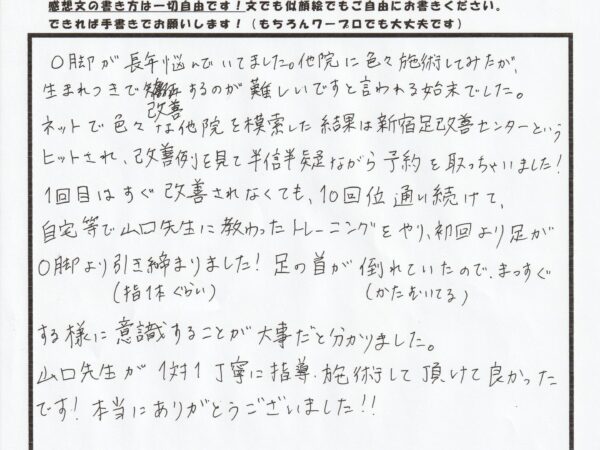 感想文の書き方は一切自由です！文でも似顔絵でもご自由にお書きください。
できれば手書きでお願いします！（もちろんワープロでも大丈夫です）
O脚が長年悩んでいてました。他院に色々施術してみたが、
生まれつきで改善するのが難しいですと言われる始末でした。
ネットで色々な他院を模索した結果は新宿足改善センターという
ヒットされ、改善例を見て半信半疑ながら予約を取っちゃいました！
1回目はすぐ改善されなくても、10回位通い続けて、
自宅等で山口先生に教わったトレーニングをやり、初回より足が
O脚より引き締まりました！足の首が倒れていたので、まっすぐ
（指1本ぐらい）（かたむいてる）
する様に意識することが大事だと分かりました。
山口先生が1対1丁寧に指導、施術して頂けて良かった
です！本当にありがとうございました！！